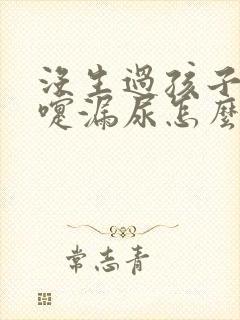 没生過孩子
嚏漏尿怎麼
常志青